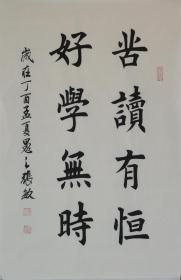 苦讀有恒
好學無時
歲在丁酉孟夏愚之張敏